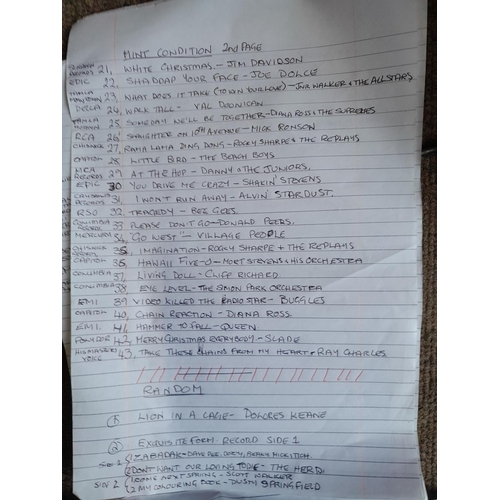 MINT CONDITION 2nd PAGE
RECORDS 21, WHITE CHRISTMAS - JIM DAVIDSON
EPIC 22, SHADDAP YOUR FACE - JOE DOLCE
TAMLA MOTOWN 23, WHAT DOES IT TAKE (TO WIN YOUR LOVE) - JNR WALKER & THE ALLSTARS
DECCA 24, WALK TALL - VAL DOONICAN
TAMLA MOTOWN 25, SOMEDAY WE'LL BE TOGETHER - DIANA ROSS & THE SUPREMES
RCA 26, SLAUGHTER ON 10TH AVENUE - MICK RONSON
CHISWICK 27, RAMA LAMA DING DONG - ROCKY SHARPE & THE REPLAYS
CAPITOL 28, LITTLE BIRD - THE BEACH BOYS
MCA RECORDS 29, AT THE HOP - DANNY & THE JUNIORS.
EPIC 30 YOU DRIVE ME CRAZY - SHAKIN' STEVENS
CHRYSALIS RECORDS 31, I WON'T RUN AWAY - ALVIN STARDUST.
RSO 32, TRAGEDY - BEE GEES.
COLUMBIA 33, PLEASE DON'T GO - DONALD PEERS.
MERCURY 34, "GO WEST" - VILLAGE PEOPLE
CHISWICK 35, IMAGINATION - ROCKY SHARPE & THE REPLAYS
CAPITOL 36, HAWAII FIVE-O - MORT STEVENS & HIS ORCHESTRA
COLUMBIA 37, LIVING DOLL - CLIFF RICHARD
COLUMBIA 38, EYE LEVEL - THE SIMON PARK ORCHESTRA
EMI 39 VIDEO KILLED THE RADIO STAR - BUGGLES
CAPITOL 40, CHAIN REACTION - DIANA ROSS.
EMI. 41, HAMMER TO FALL - QUEEN
POLYDOR 42, MERRY CHRISTMAS EVERYBODY - SLADE
HIS MASTERS VOICE 43, TAKE THESE CHAINS FROM MY HEART - RAY CHARLES
RANDOM
① LION IN A CAGE - DOLORES KEANE
② EXQUISITE FORM RECORD SIDE 1
SIDE 1 1 ZABADAK - DAVE DEE, DOZY, BEAKY, MICK & TICH
2 DON'T WANT OUR LOVING TO DIE - THE HERD
SIDE 2 1 COME NEXT SPRING - SCOTT WALKER
2 MY COLOURING BOOK - DUSTY SPRINGFIELD